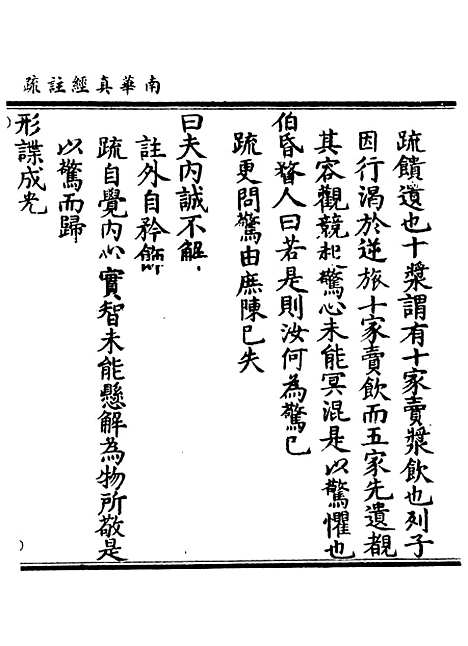 南華真經註疏
疏饋遺也十漿謂有十家賣漿飲也列子
因行渴於逆旅十家賣飲而五家先遺覩
其容觀競起驚心未能冥混是以驚懼也
伯昏瞀人曰若是則汝何為驚已
疏更問驚由庶陳已失
曰夫內誠不解
註外自矜飾
疏自覺內心實智未能懸解為物所敬是
以驚而歸
形諜成光